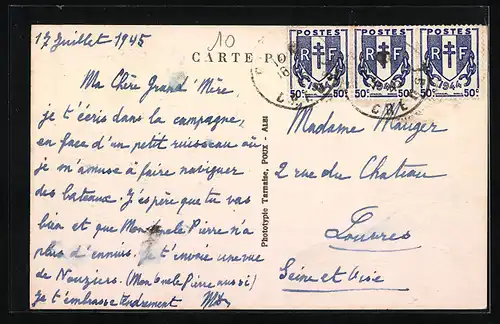 17 Juillet 1945
10
CARTE PO
POSTES POSTES POSTES
RF RF RF
1944
50c 50c 50c 50c 50c 50c
CREUSE
Ma Chère Grand' Mère,
je t'écris dans la campagne,
en face d'un petit ruisseau où
je m'amuse à faire naviguer
des bateaux. J'espère que tu vas
bien et que Mon Oncle Pierre n'a
plus d'ennuis. Je t'envoie une vue
de Nouziers. (Mon Oncle Pierre aussi)
Je t'embrasse tendrement
Phototypie Tarnaise, POUX - ALBI
Madame Mauger
2 rue du Chateau
Louvres
Seine et Oise